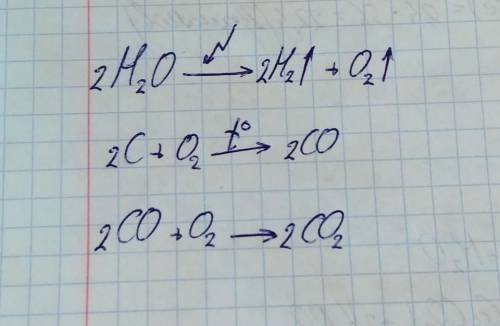 2H₂O ⟶ 2H₂↑ + O₂↑
2C + O₂ —t°→ 2CO
2CO + O₂ ⟶ 2CO₂